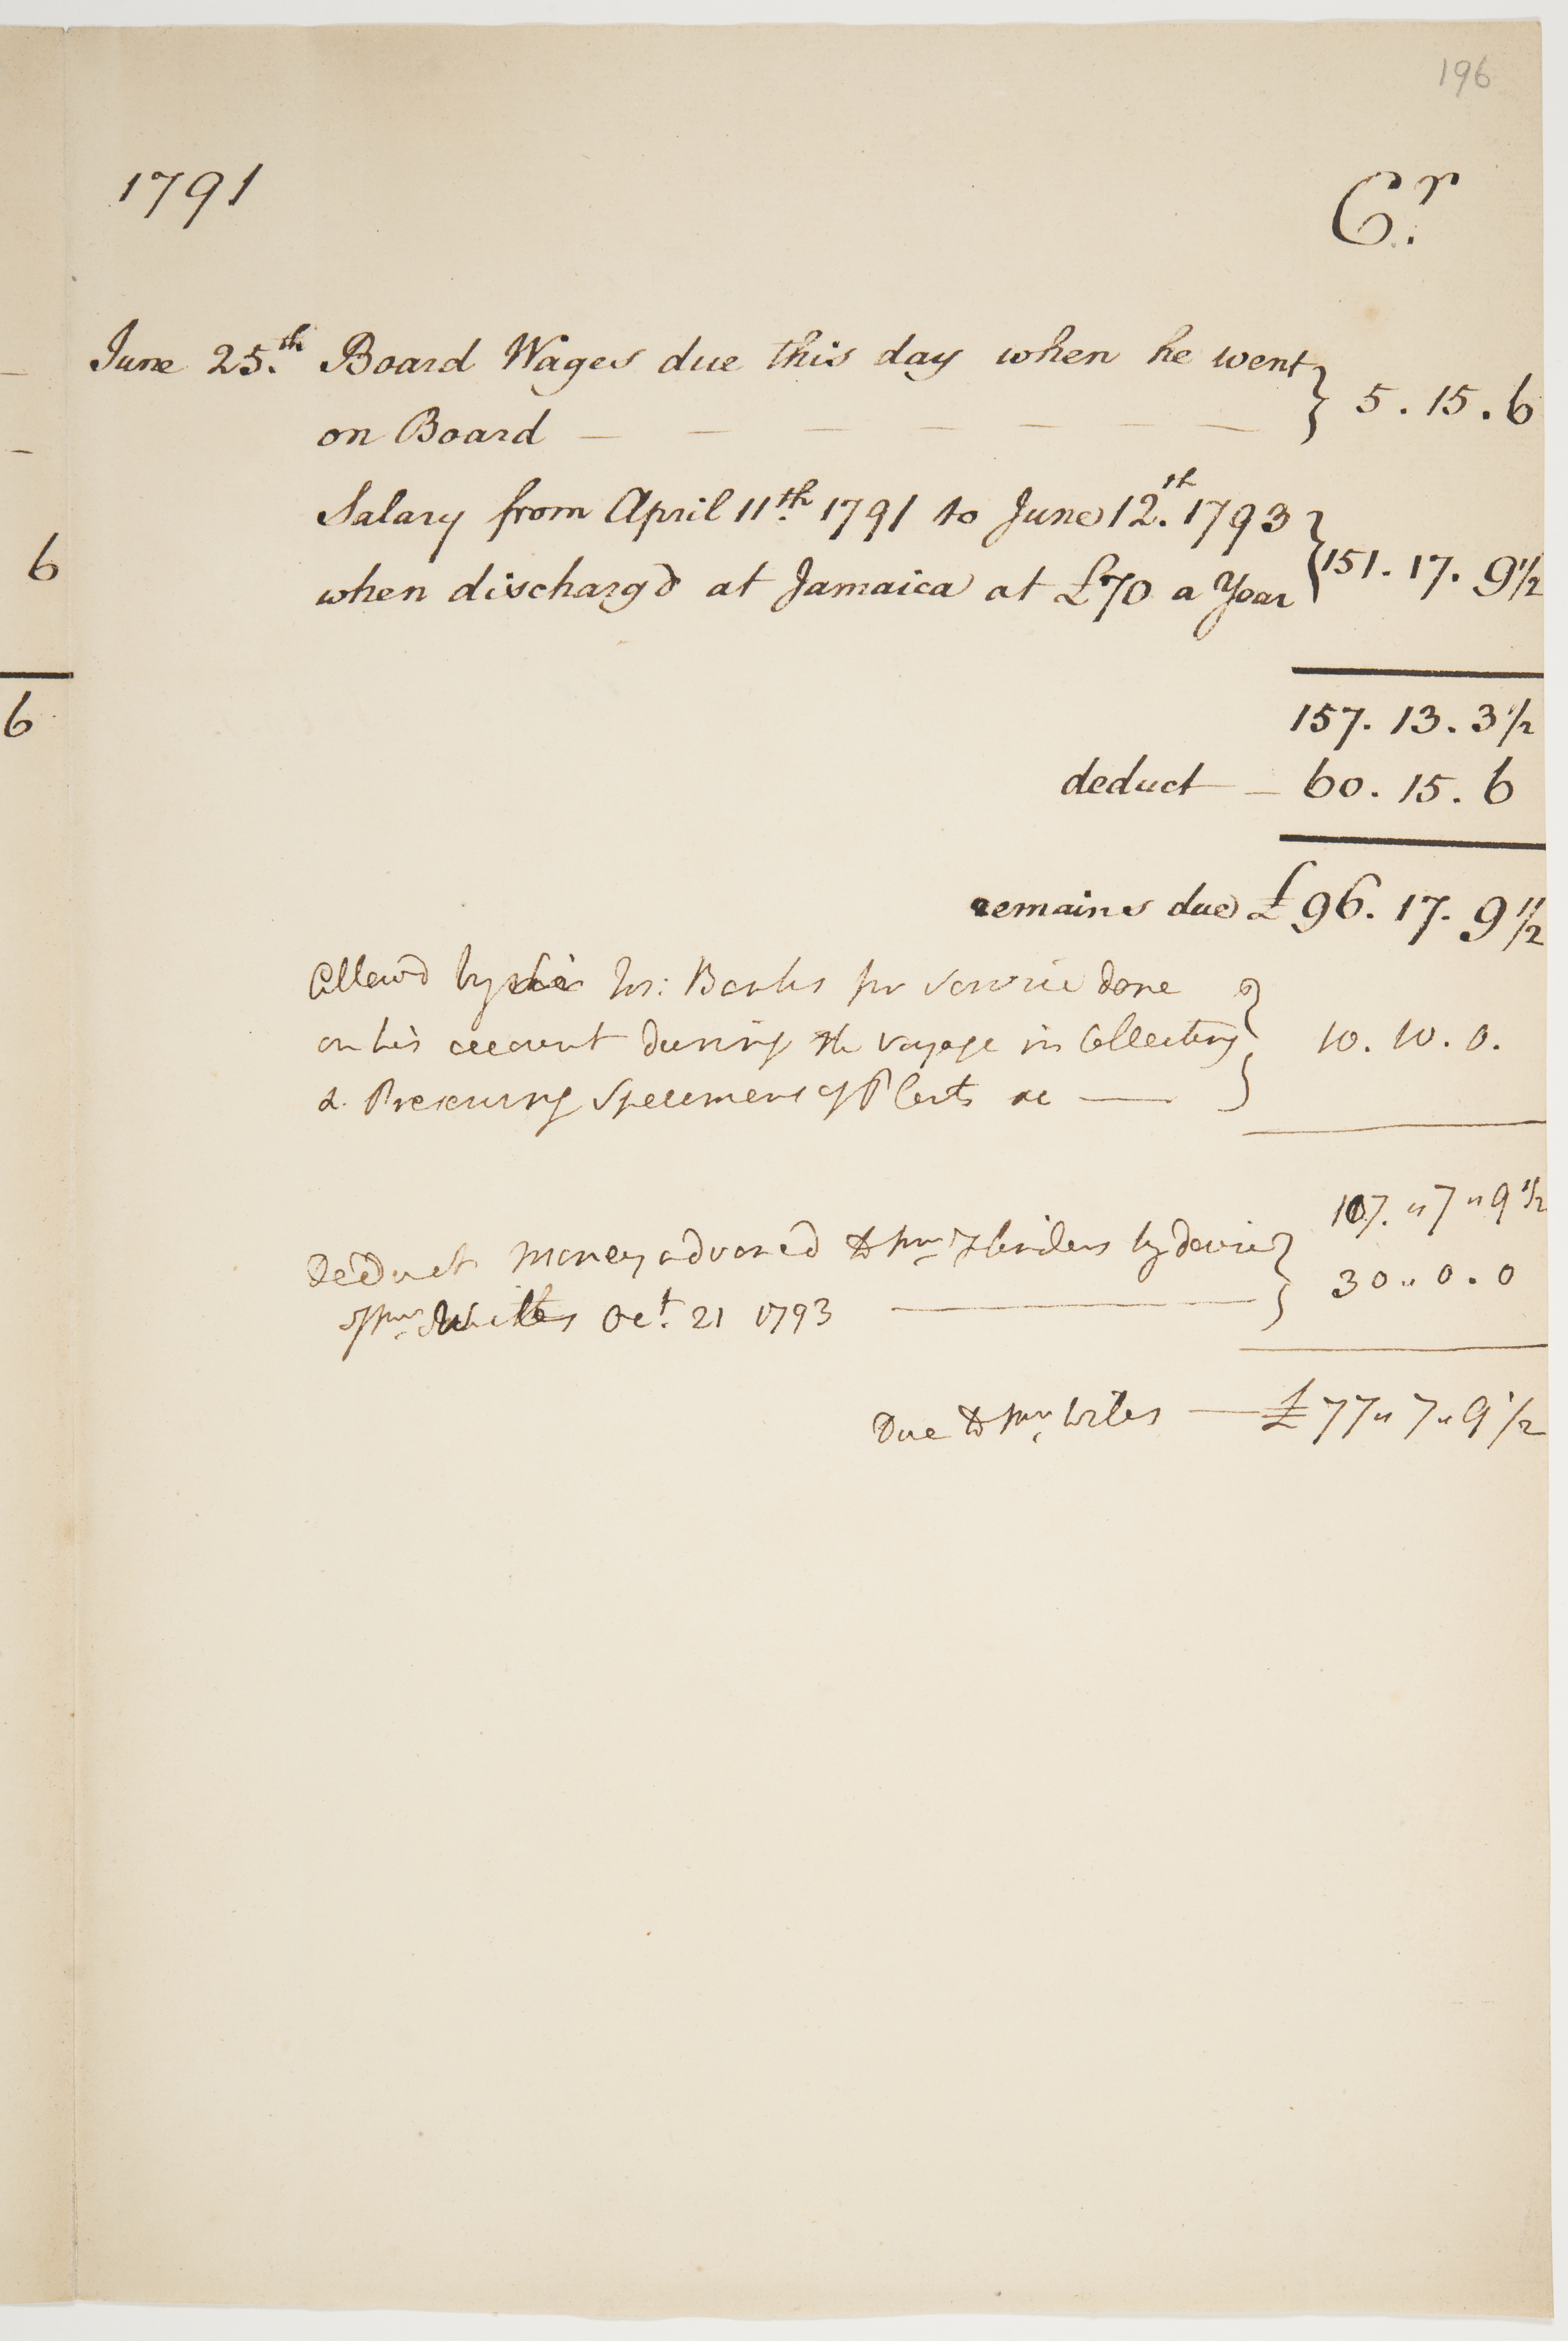 196
1791 Cr.
June 25.th Board Wages due this day when he went
on Board — — — — — — } 5 . 15 . 6
Salary from April 11th 1791 to June 12.th 1793
when discharg'd at Jamaica at £70 a Year } 151 . 17 . 9 1/2
6
157 . 13 . 3 1/2
6
deduct — 60 . 15 . 6
remains due £96 . 17 . 9 1/2
Allowd by Sir Jos: Banks for service done
on his account during the voyage in Collecting } 10 . 10 . 0 .
& Preserving Specimens of Plants &c —
107 . " 7 " 9 1/2
Deduct money advanced to Mr Flinders by desire } 30 " 0 . 0
of Mr Wiles Oct. 21 1793 —
Due to Mr Wiles — £77 " 7 " 9 1/2